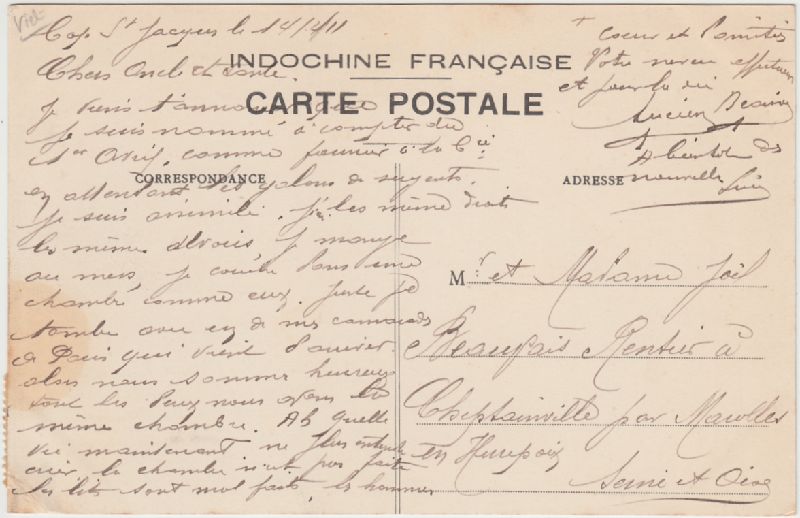 Viet
Cap St Jacques le 14/4/11
INDOCHINE FRANÇAISE
CARTE POSTALE
CORRESPONDANCE
Chers Oncle et tante.
Je viens t'annoncer que
Je suis nommé à compter du
1er Avril comme fourrier à la Cie
en attendant les galons de sergent.
Je suis assimilé. J'ai les même droits
les même devoirs, je mange
au mess, je couche dans une
chambre comme eux. Juste je
tombe avec un de mes camarades
de Paris qui vient d'arriver
alors nous sommes heureux
tout les deux nous avons la
même chambre. Ah quelle
vie maintenant ne plus entendre
crier la chambre n'est pas faite
les lits sont mal faits, les hommes
+ Coeur et amitiés
Votre neveu affectueux
et pour la vie
Lucien
A bientôt des
nouvelles
ADRESSE
Mr et Madame Joil
Beaufais Rentier à
Cheptainville par Marolles
en Hurepoix
Seine et Oise